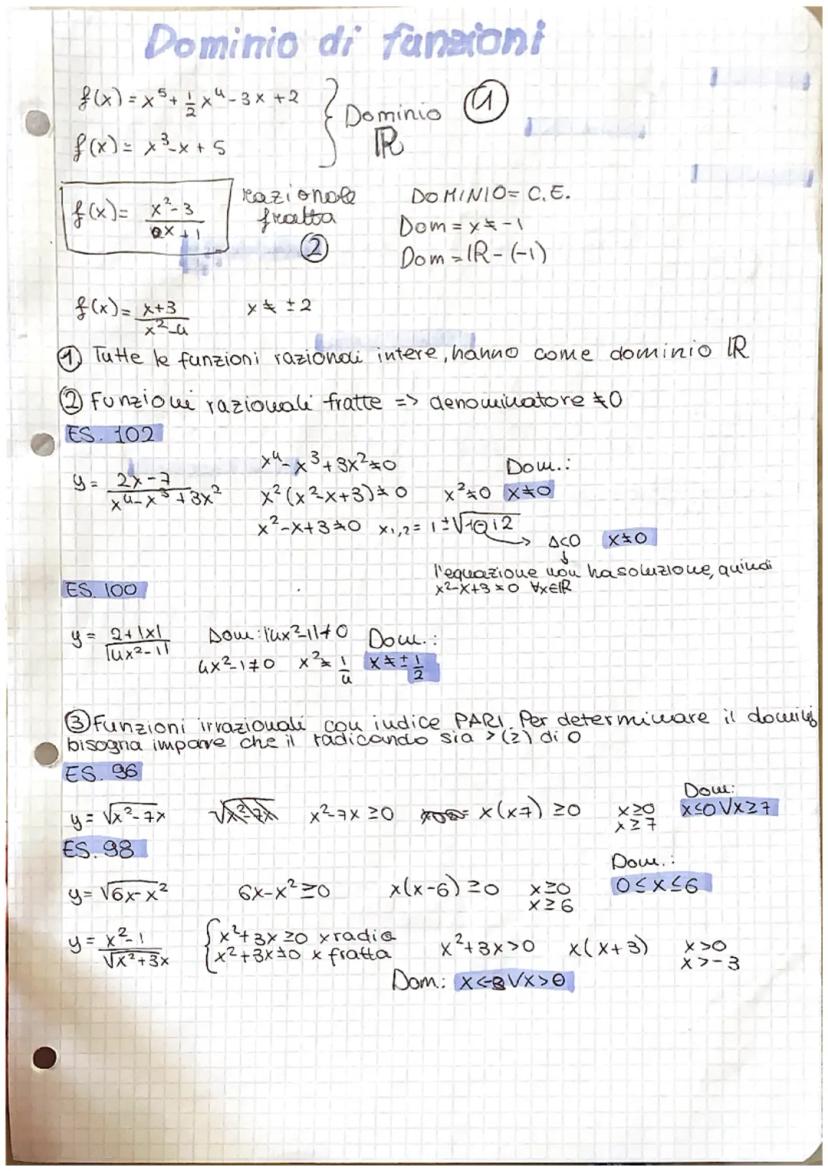 Dominio di funzioni
f(x) = x⁵ + 1/2 x⁴ - 3x + 2
f(x) = x³ - x + 5
} Dominio ℝ ①
f(x) = (x² - 3)/(x + 1) razionale fratta ②
DOMINIO = C.E.
Dom = x ≠ -1
Dom = ℝ - (-1)
f(x) = (x+3)/(x²-4) x ≠ ±2
① Tutte le funzioni razionali intere, hanno come dominio ℝ
② Funzioni razionali fratte => denominatore ≠ 0
ES. 102
y = (2x-7)/(x⁴-x³+3x²) x⁴-x³+3x² ≠ 0 Dom.:
x²(x²-x+3) ≠ 0 x² ≠ 0 x ≠ 0
x²-x+3 ≠ 0 x₁,₂ = 1 ± √1-12 → Δ<0 x ≠ 0
l'equazione non ha soluzione, quindi
x²-x+3 ≠ 0 ∀x∈ℝ
ES. 100
y = (2+|x|)/|4x²-1| Dom: |4x²-1| ≠ 0 Dom.:
4x²-1 ≠ 0 x² ≠ 1/4 x ≠ ± 1/2
③ Funzioni irrazionali con indice PARI. Per determinare il domini
bisogna imporre che il radicando sia > (≥) di 0
ES. 96
y = √x²-7x x²-7x ≥ 0 x(x7) ≥ 0 x ≥ 0
x ≥ 7
Dom:
x ≤ 0 ∨ x ≥ 7
ES. 98
y = √6x-x² 6x-x² ≥ 0 x(x-6) ≥ 0 x ≥ 0
x ≥ 6
Dom.:
0 ≤ x ≤ 6
y = (x²-1)/√x²+3x { x²+3x ≥ 0 x radic
x²+3x ≠ 0 x fratta
x²+3x > 0 x(x+3) x > 0
x > -3
Dom: x < -3 ∨ x > 0